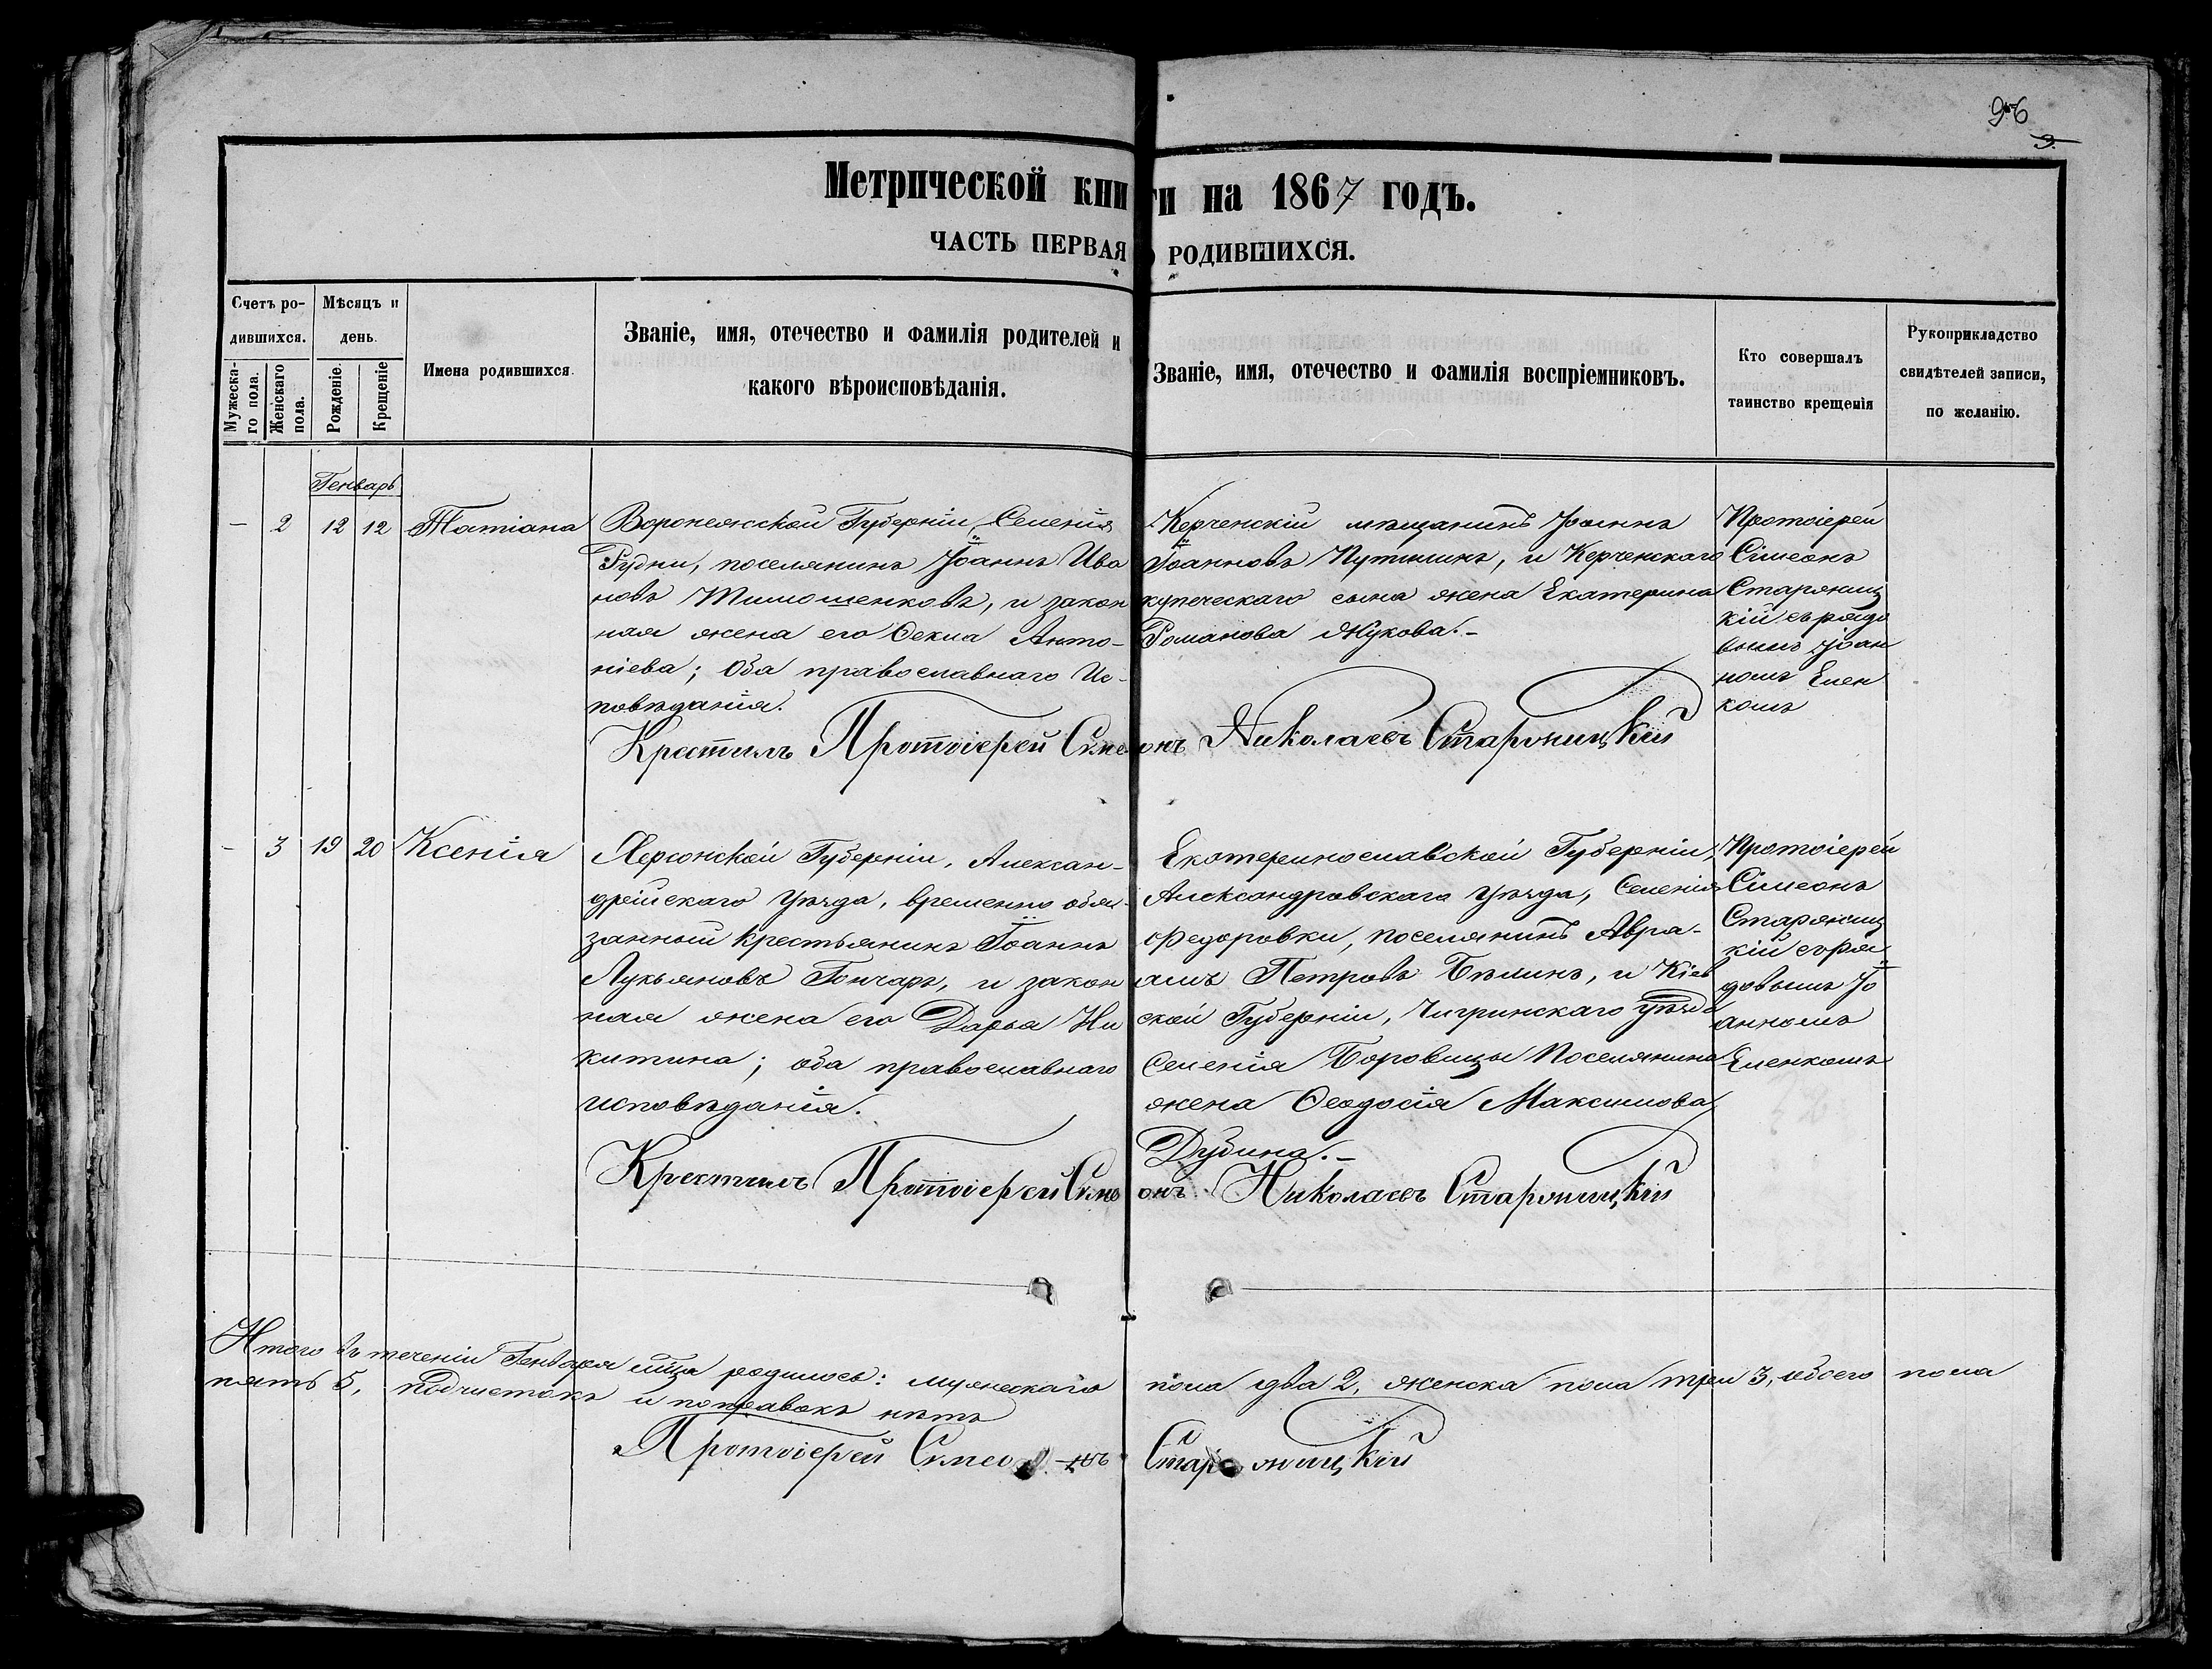 96
3.
Метрической книги на 1867 годъ.
ЧАСТЬ ПЕРВАЯ О РОДИВШИХСЯ.
Счетъ ро-
дившихся.
Мужеска-
го пола.
Женскаго
пола.
Мѣсяцъ и
день.
Рожденіе.
Крещеніе
Имена родившихся.
Званіе, имя, отечество и фамилія родителей и
какого вѣроисповѣданія.
Званіе, имя, отечество и фамилія воспріемниковъ.
Кто совершалъ
таинство крещенія
Рукоприкладство
свидѣтелей записи,
по желанію.
Генварь
— 2 12 12 Татіана
Воронежской Губерніи, Селенія
Рудни, поселянинъ Іоаннъ Ива
новъ Тимошенковъ, и закон
ная жена его Ѳекла Анто-
ніева; Оба православнаго Ис-
повѣданія.
Керченскій мѣщанинъ Іоаннъ
Іоанновъ Путилинъ, и Керченскаго
купеческаго сына жена Екатерина
Романова Жукова.-
Протоіерей
Сімеонъ
Старожиц
кій съ рядо
вымъ Іоан
номъ Елен
комъ
Крестилъ Протоіерей Симеонъ Николаевъ Старожицкій
- 3 19 20 Ксенія
Херсонской Губерніи, Алексан-
дрійскаго уѣзда, временно обя-
занный крестьянинъ Іоаннъ
Лукьяновъ Гончаръ, и закон
ная жена его Дарья Ни
китина; оба православнаго
исповѣданія.
Екатеринославской Губерніи,
Александровскаго уѣзда, Селенія
Федоровки, поселянинъ Авра-
амъ Петровъ Бѣлинъ, и Кіев
ской Губерніи, Чигринскаго уѣзда
Селенія Боровицы Поселянина
жена Ѳеодосія Максимова
Дубина.-
Протоіерей
Сімеонъ
Старожиц
кій съ ря
довымъ Іо
анномъ
Еленкомъ
Крестилъ Протоіерей Симеонъ Николаевъ Старожицкій
Итого въ теченіи Генваря м͠ца родилось: мужескаго пола два 2, женска пола три 3, обоего пола
пять 5, подчистокъ и поправокъ нѣтъ
Протоіерей Симеонъ Старожицкій